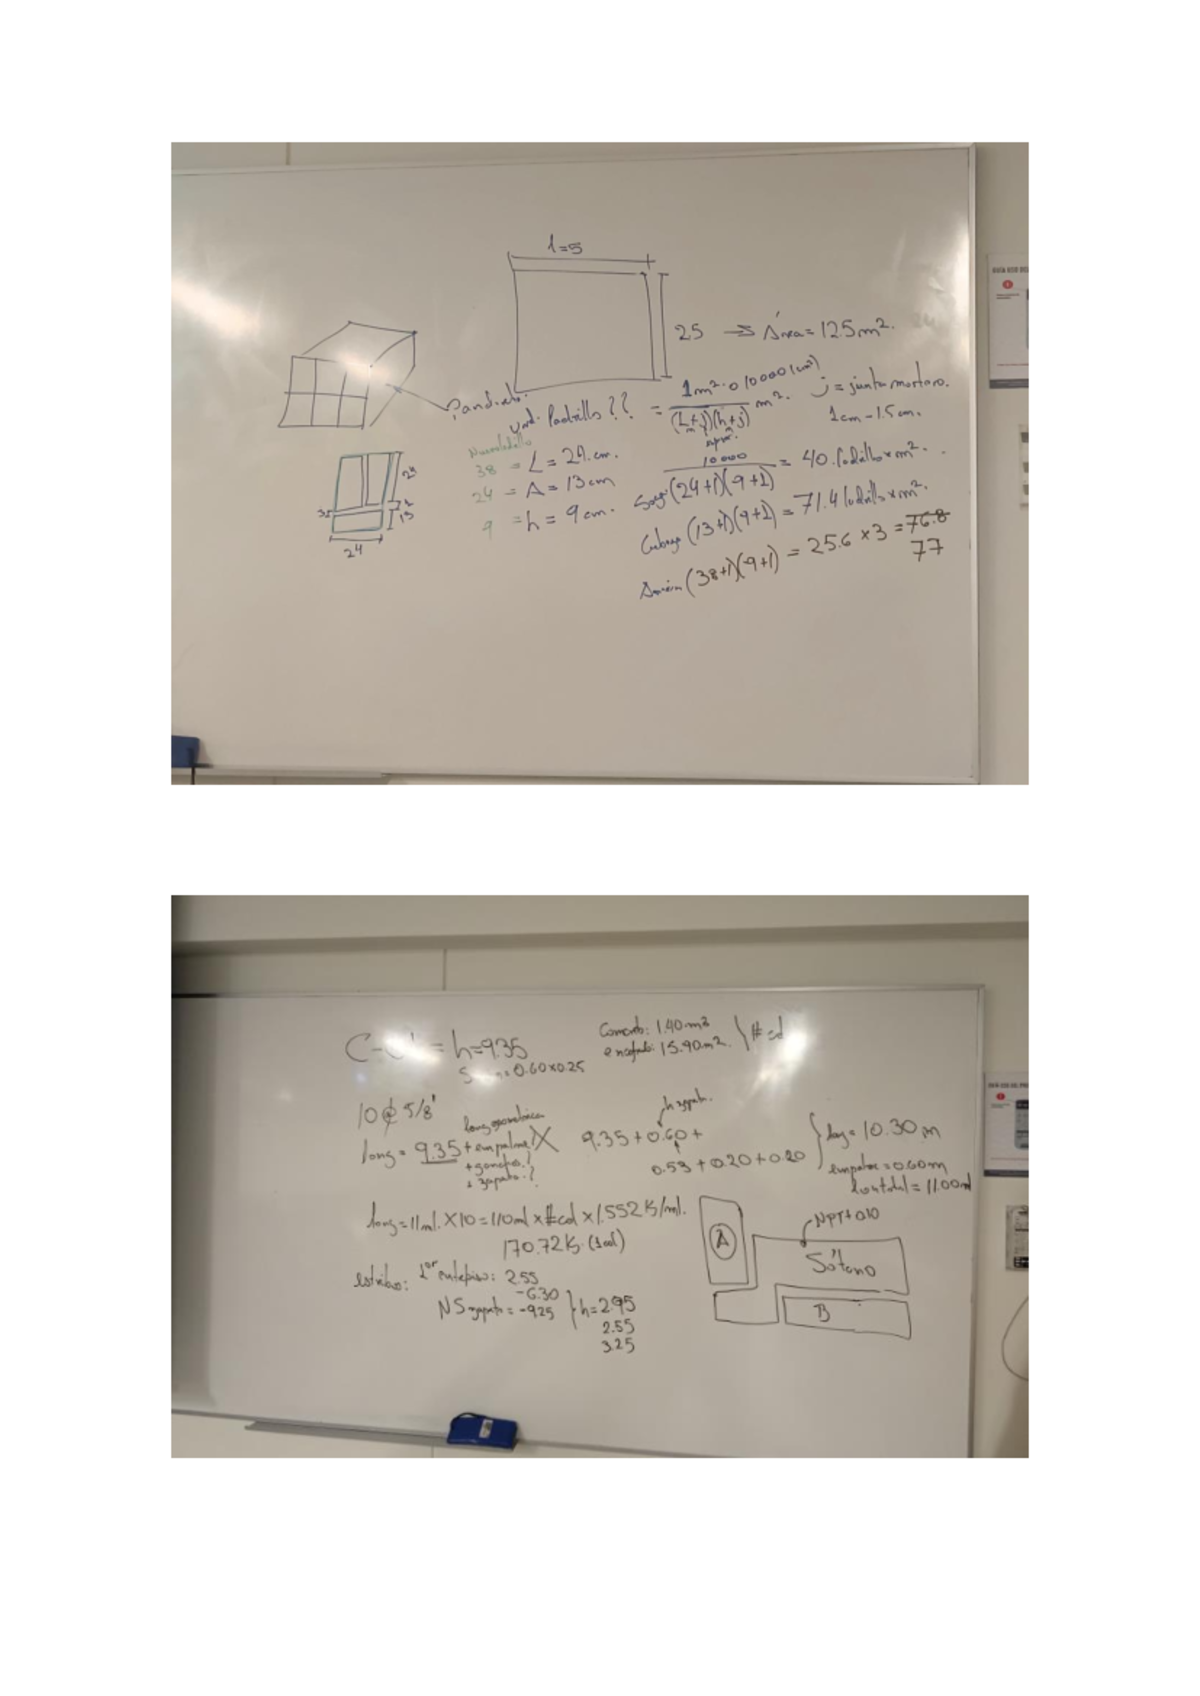 l=5
25 → Área = 12.5 m².
Pandereta.
Und. Ladrillo ?? = 1m² o 10000 (cm²) / (L+j)(h+j) m². j = junta mortero.
1cm - 1.5cm.
38 = L = 24 cm.
24 = A = 13 cm
9 = h = 9 cm.
10000
Soga (24+1)(9+1) = 40 ladrillo x m².
Cabeza (13+1)(9+1) = 71.4 ladrillo x m².
(38+1)(9+1) = 25.6 x 3 = 76.8
77
24
13
24
h = 9.35
= 0.60x0.25
Concreto: 1.40 m3
encofrado: 15.90 m2. # col
10 Ø 5/8"
long geométrica
long = 9.35 + empalme?
+ ganchos?
+ zapata?
h zapata.
9.35 + 0.60 +
0.53 + 0.20 + 0.20
long = 10.30 m
empalme = 0.60 m
lon total = 11.00 ml
long = 11 ml. X 10 = 110 ml x # col x 1.552 K/ml.
170.72 K. (1 col)
estribos: 1er entrepiso: 2.55
-6.30
NS zapata = -9.25 h = 2.95
2.55
3.25
A
NPT+0.10
Sótano
B